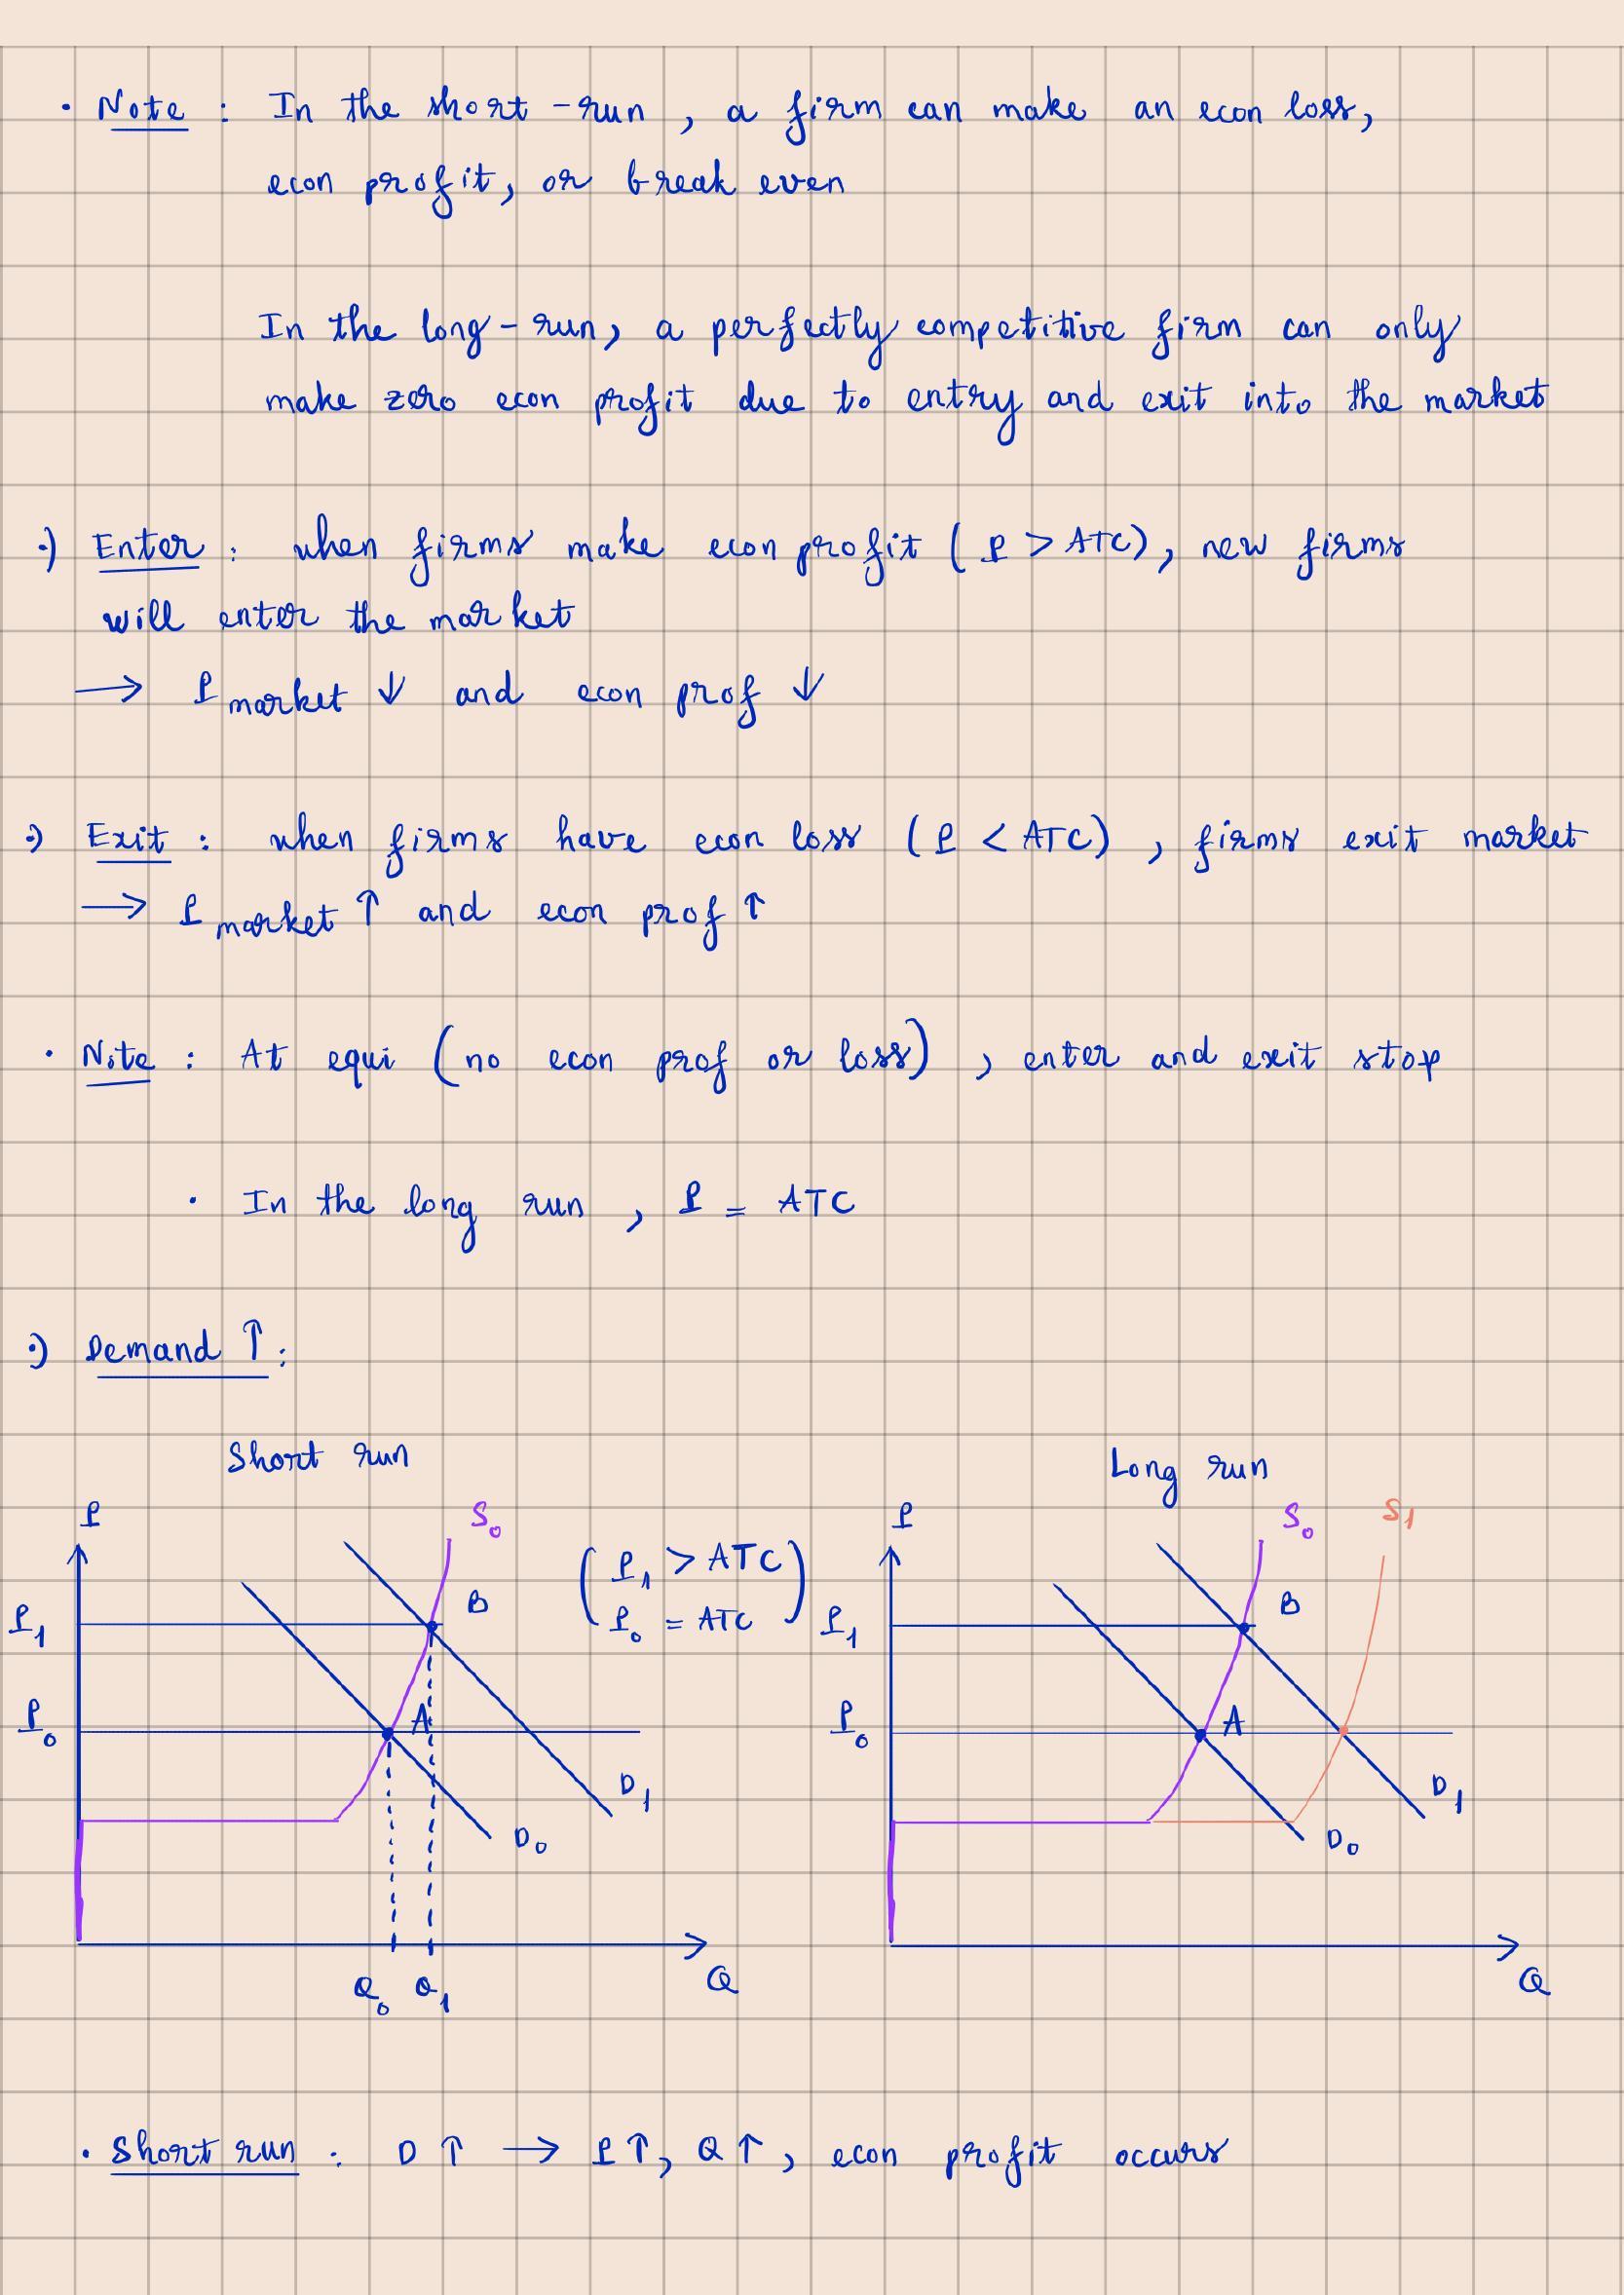 · Note : In the short-run, a firm can make an econ loss,
econ profit, or break even
In the long-run, a perfectly competitive firm can only
make zero econ profit due to entry and exit into the market
·) Enter : when firms make econ profit (P > ATC), new firms
will enter the market
→ P market ↓ and econ prof ↓
·) Exit : when firms have econ loss (P < ATC), firms exit market
→ P market ↑ and econ prof ↑
· Note : At equi (no econ prof or loss), enter and exit stop
· In the long run, P = ATC
·) Demand ↑ :
Short run
P
S₀
(P₁ > ATC
P₀ = ATC)
P₁
B
P₀
A
D₁
D₀
Q₀ Q₁
Q
Long run
P
S₀
S₁
P₁
B
P₀
A
D₁
D₀
Q
· Short run : D ↑ → P ↑, Q ↑, econ profit occurs